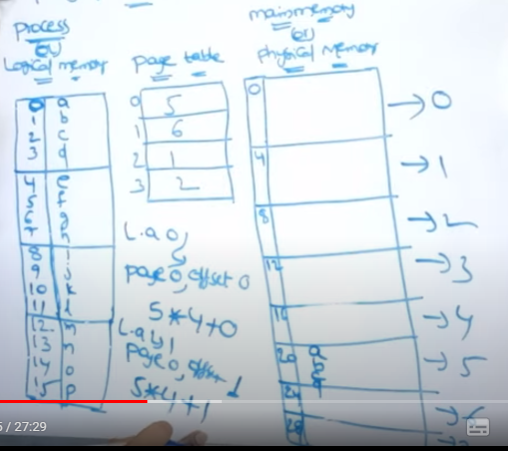 Process
(or)
Logical memory
0 a
1 b
2 c
3 d
4 e
5 f
6 g
7 h
8 i
9 j
10 k
11 l
12 m
13 n
14 o
15 p
page table
0 5
1 6
2 1
3 2
L.a 0,
page 0, offset 0
5*4+0
L.a 1
page 0, offset 1
5*4+1
main memory
(or)
physical memory
0 → 0
4 → 1
8 → 2
12 → 3
16 → 4
20 a → 5
b
24
28
/ 27:29